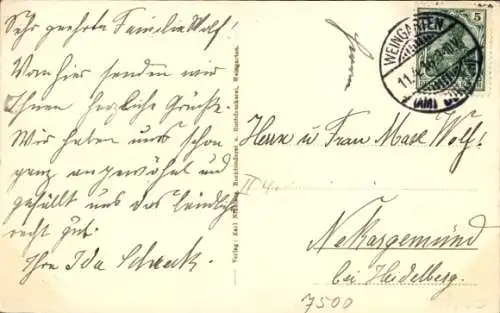 Sehr geehrte Familie Wolf!
Von hier senden wir
Ihnen herzliche Grüsse.
Wir haben uns schon
ganz angewöhnt und
gefällt uns das ländliche
recht gut.
Ihre Ida Schenk.
Verlag: Karl Buchbinderei u. Buchdruckerei, Weingarten.
franco
WEINGARTEN
5
Herrn u Frau Max Wolf!
Nekargemünd
bei Heidelberg.
7500